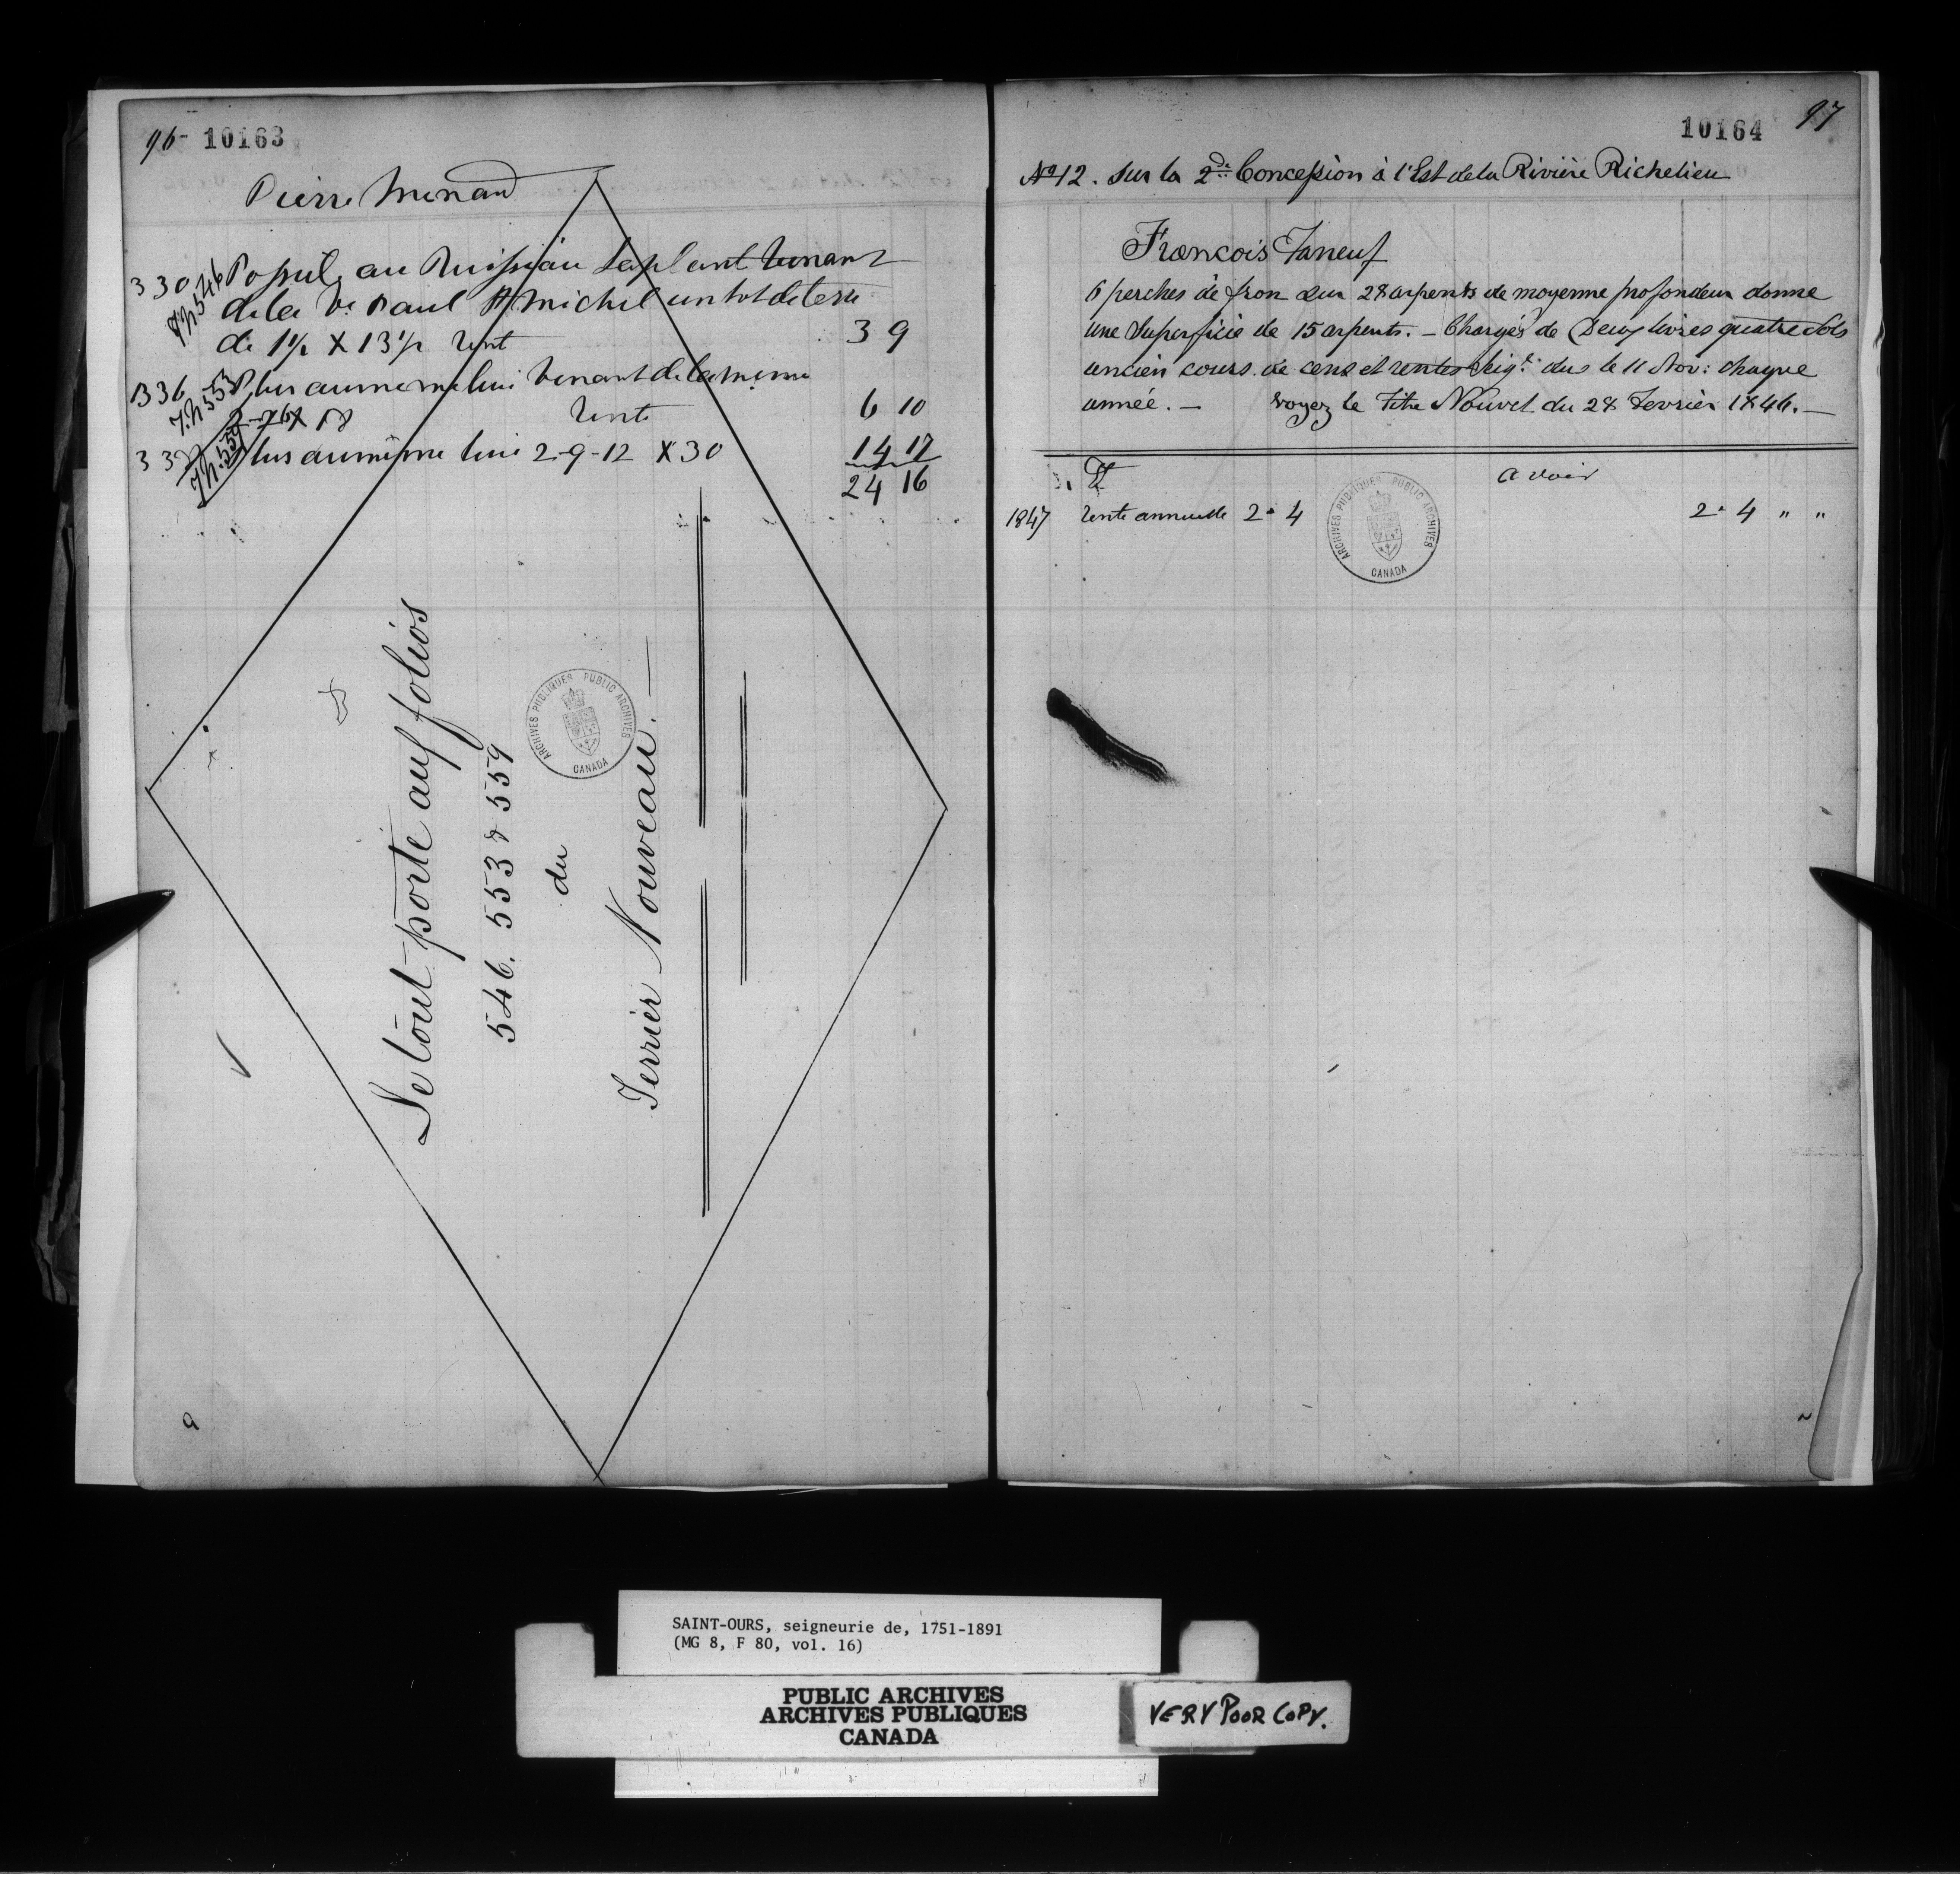 96- 10163
Pierre Menard
330 T.N 546 Possed. au Ruisseau Laplant venant
de la Ve. Paul St Michel un lot de terre
de 1 1/2 X 13 1/2 rent 3 9
336 T.N 553 Plus au meme lieu venant de la meme
X 18 rente 6 10
T.N. 559 Plus au même lieu 2-9-12 X 30 14 17
24 16
Le tout porté aux folios
546. 553 & 559
du
Terrier Nouveau. —
ARCHIVES PUBLIQUES PUBLIC ARCHIVES
CANADA
10164 97
No 12. sur la 2de Concession à l'Est de la Rivière Richelieu
François Faneuf
6 perches de fron sur 28 arpents de moyenne profondeur donne
une Superficie de 15 arpents. — Chargés de Deux livres quatre sols
ancien cours de cens et rentes Seigr. dus le 11 Nov: chaque
année. — voyez le Titre Nouvel du 28 Fevrier 1846. —
Dt Avoir
1847 rente annuelle 2 " 4 2 " 4 " "
ARCHIVES PUBLIQUES PUBLIC ARCHIVES
CANADA
SAINT-OURS, seigneurie de, 1751-1891
(MG 8, F 80, vol. 16)
PUBLIC ARCHIVES
ARCHIVES PUBLIQUES
CANADA
VERY POOR COPY.